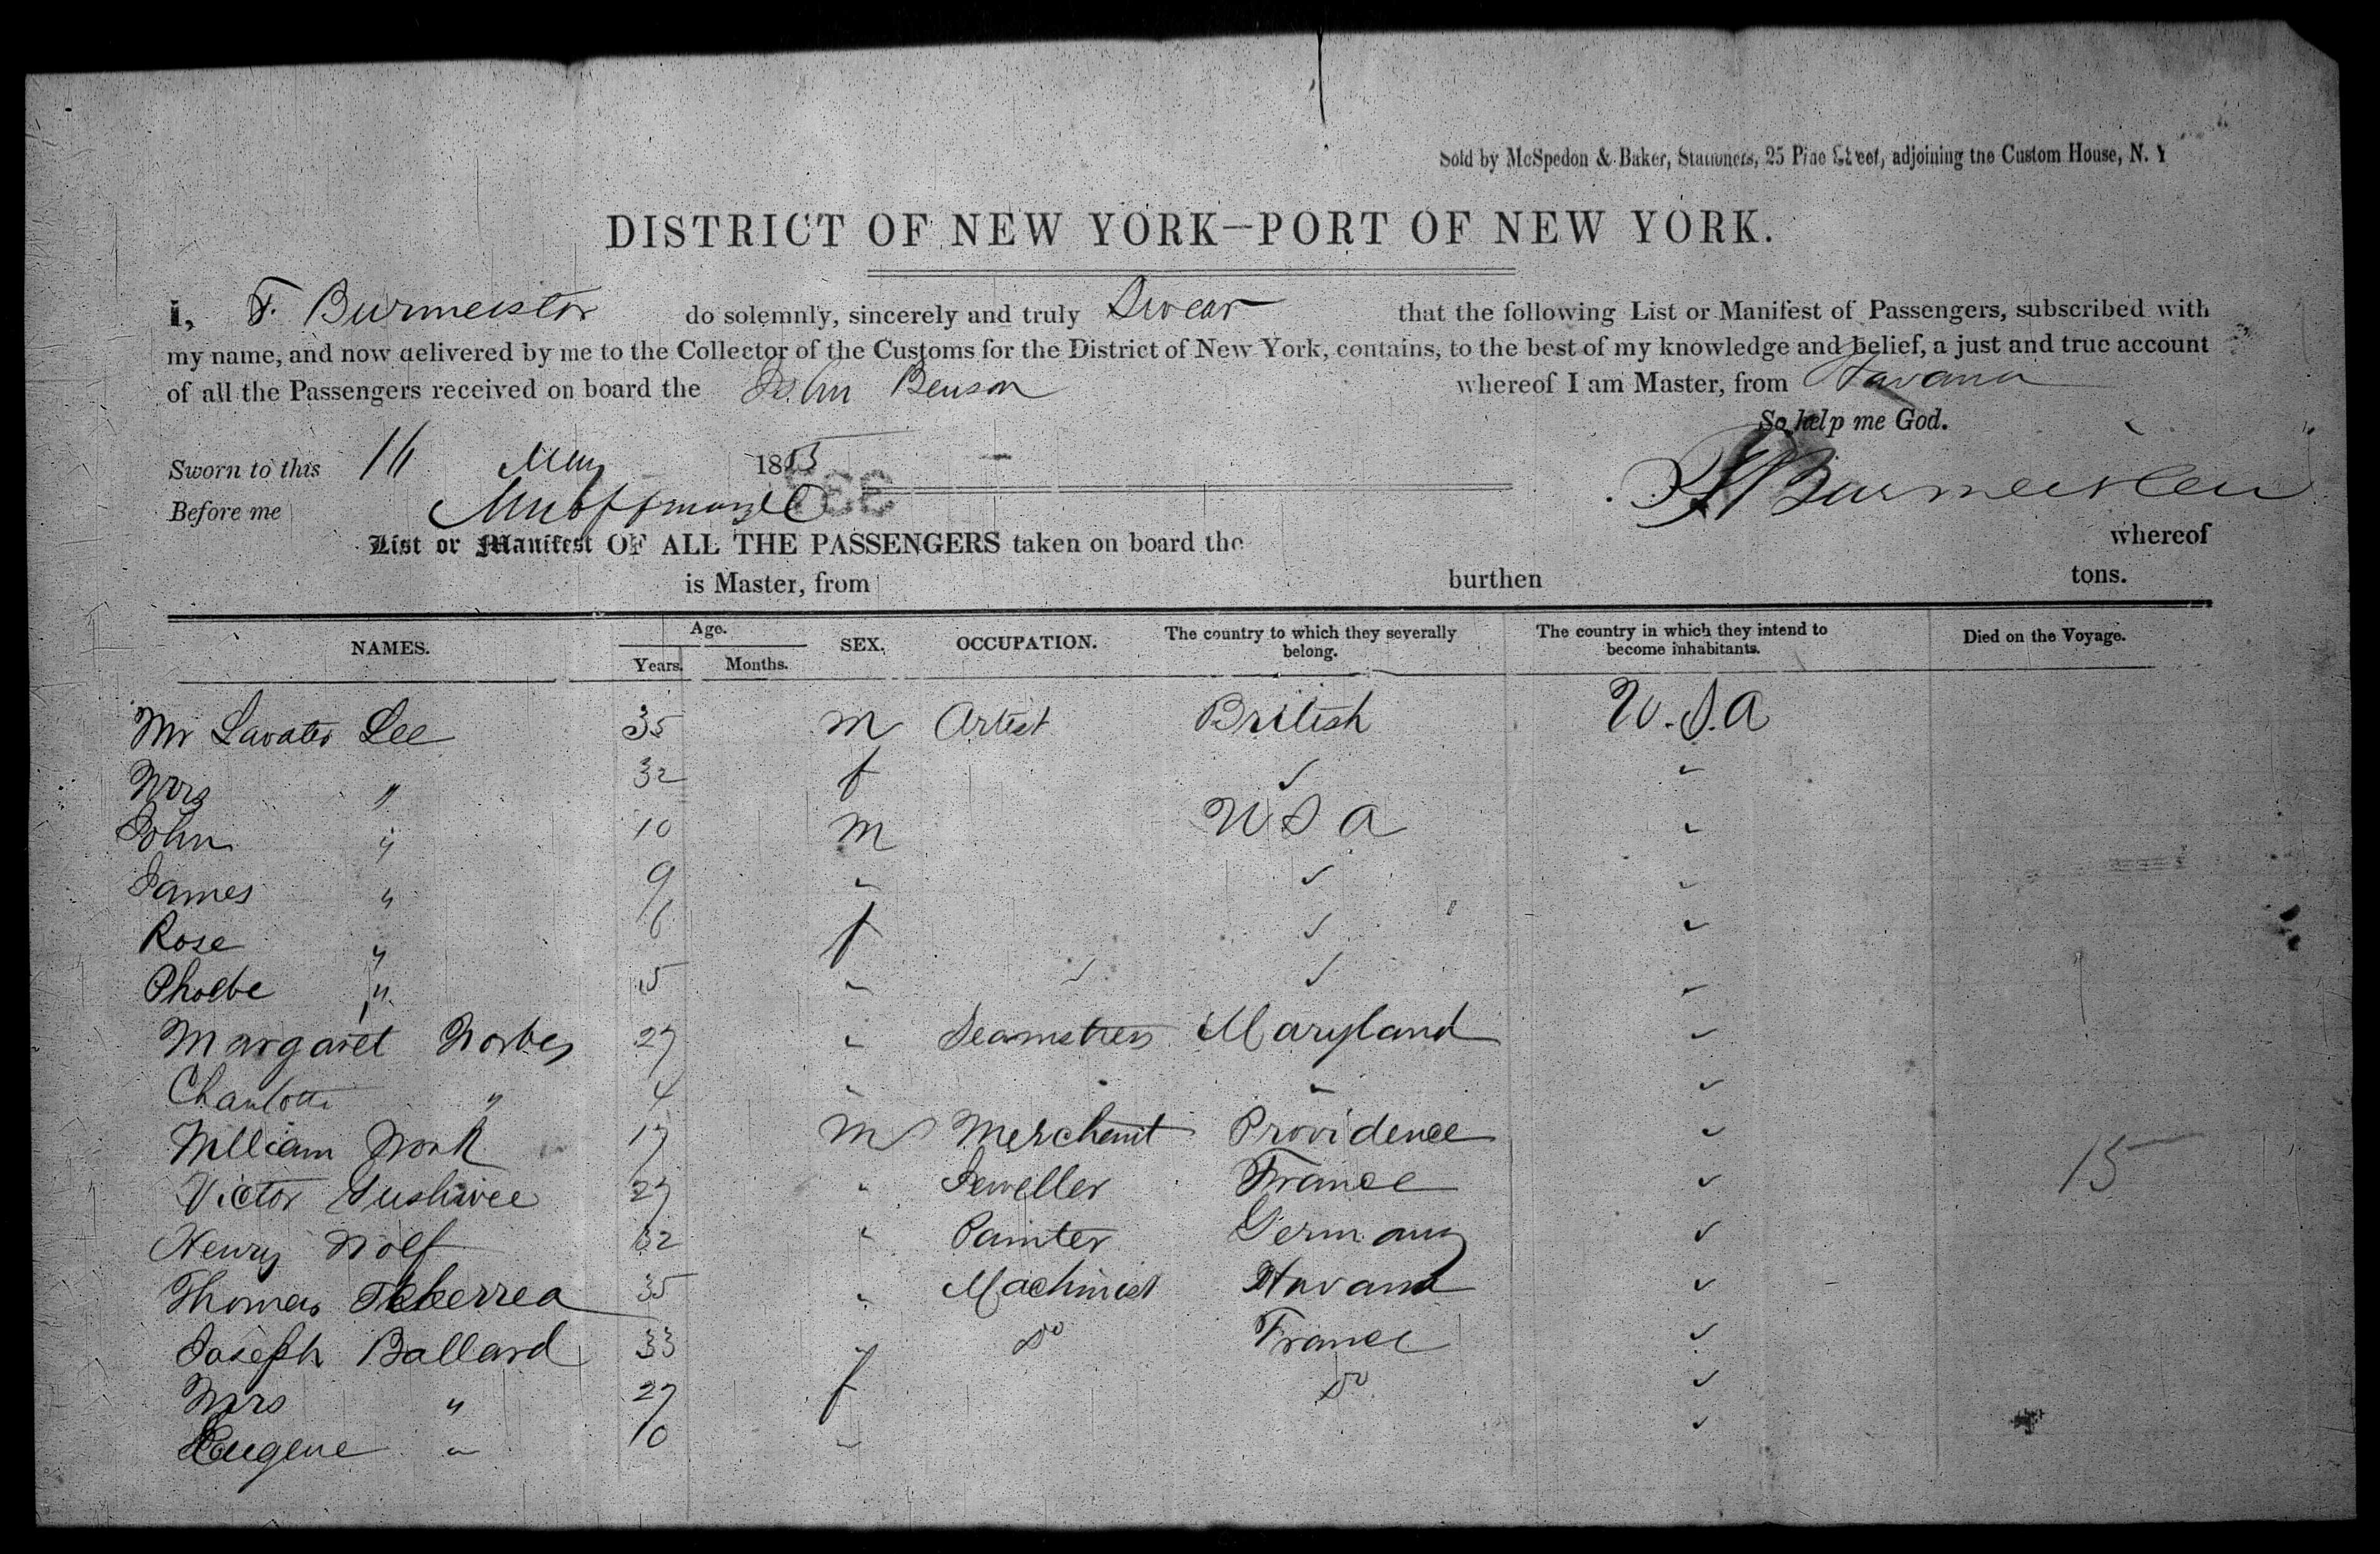 Sold by McSpedon & Baker, Stationers, 25 Pine Street, adjoining the Custom House, N. Y
DISTRICT OF NEW YORK—PORT OF NEW YORK.
I, F. Burmeister do solemnly, sincerely and truly Swear that the following List or Manifest of Passengers, subscribed with
my name, and now delivered by me to the Collector of the Customs for the District of New York, contains, to the best of my knowledge and belief, a just and true account
of all the Passengers received on board the John Benson whereof I am Master, from Havana
So help me God.
Sworn to this 16 May 1855
Before me F Burmeister
List or Manifest OF ALL THE PASSENGERS taken on board the whereof
is Master, from burthen tons.
NAMES. Age. Years. Months. SEX. OCCUPATION. The country to which they severally belong. The country in which they intend to become inhabitants. Died on the Voyage.
Mr Lavater Lee 35 m Artist British U.S.A
Mrs " 32 f ✓ ✓
John " 10 m U S A ✓
James " 9 ✓ ✓ ✓
Rose " 6 f ✓ ✓
Phoebe " 5 ✓ ✓ ✓ ✓
Margaret 27 ✓ Seamstress Maryland ✓
Charlotte " 4 ✓ ✓ ✓
William 17 m Merchant Providence ✓
Victor 27 " Jeweller France ✓ 15
Henry Wolf 32 " Painter Germany ✓
Thomas 35 " Machinist Havana ✓
Joseph Ballard 33 " Do France ✓
Mrs " 27 f Do ✓
Eugene " 10 ✓ ✓